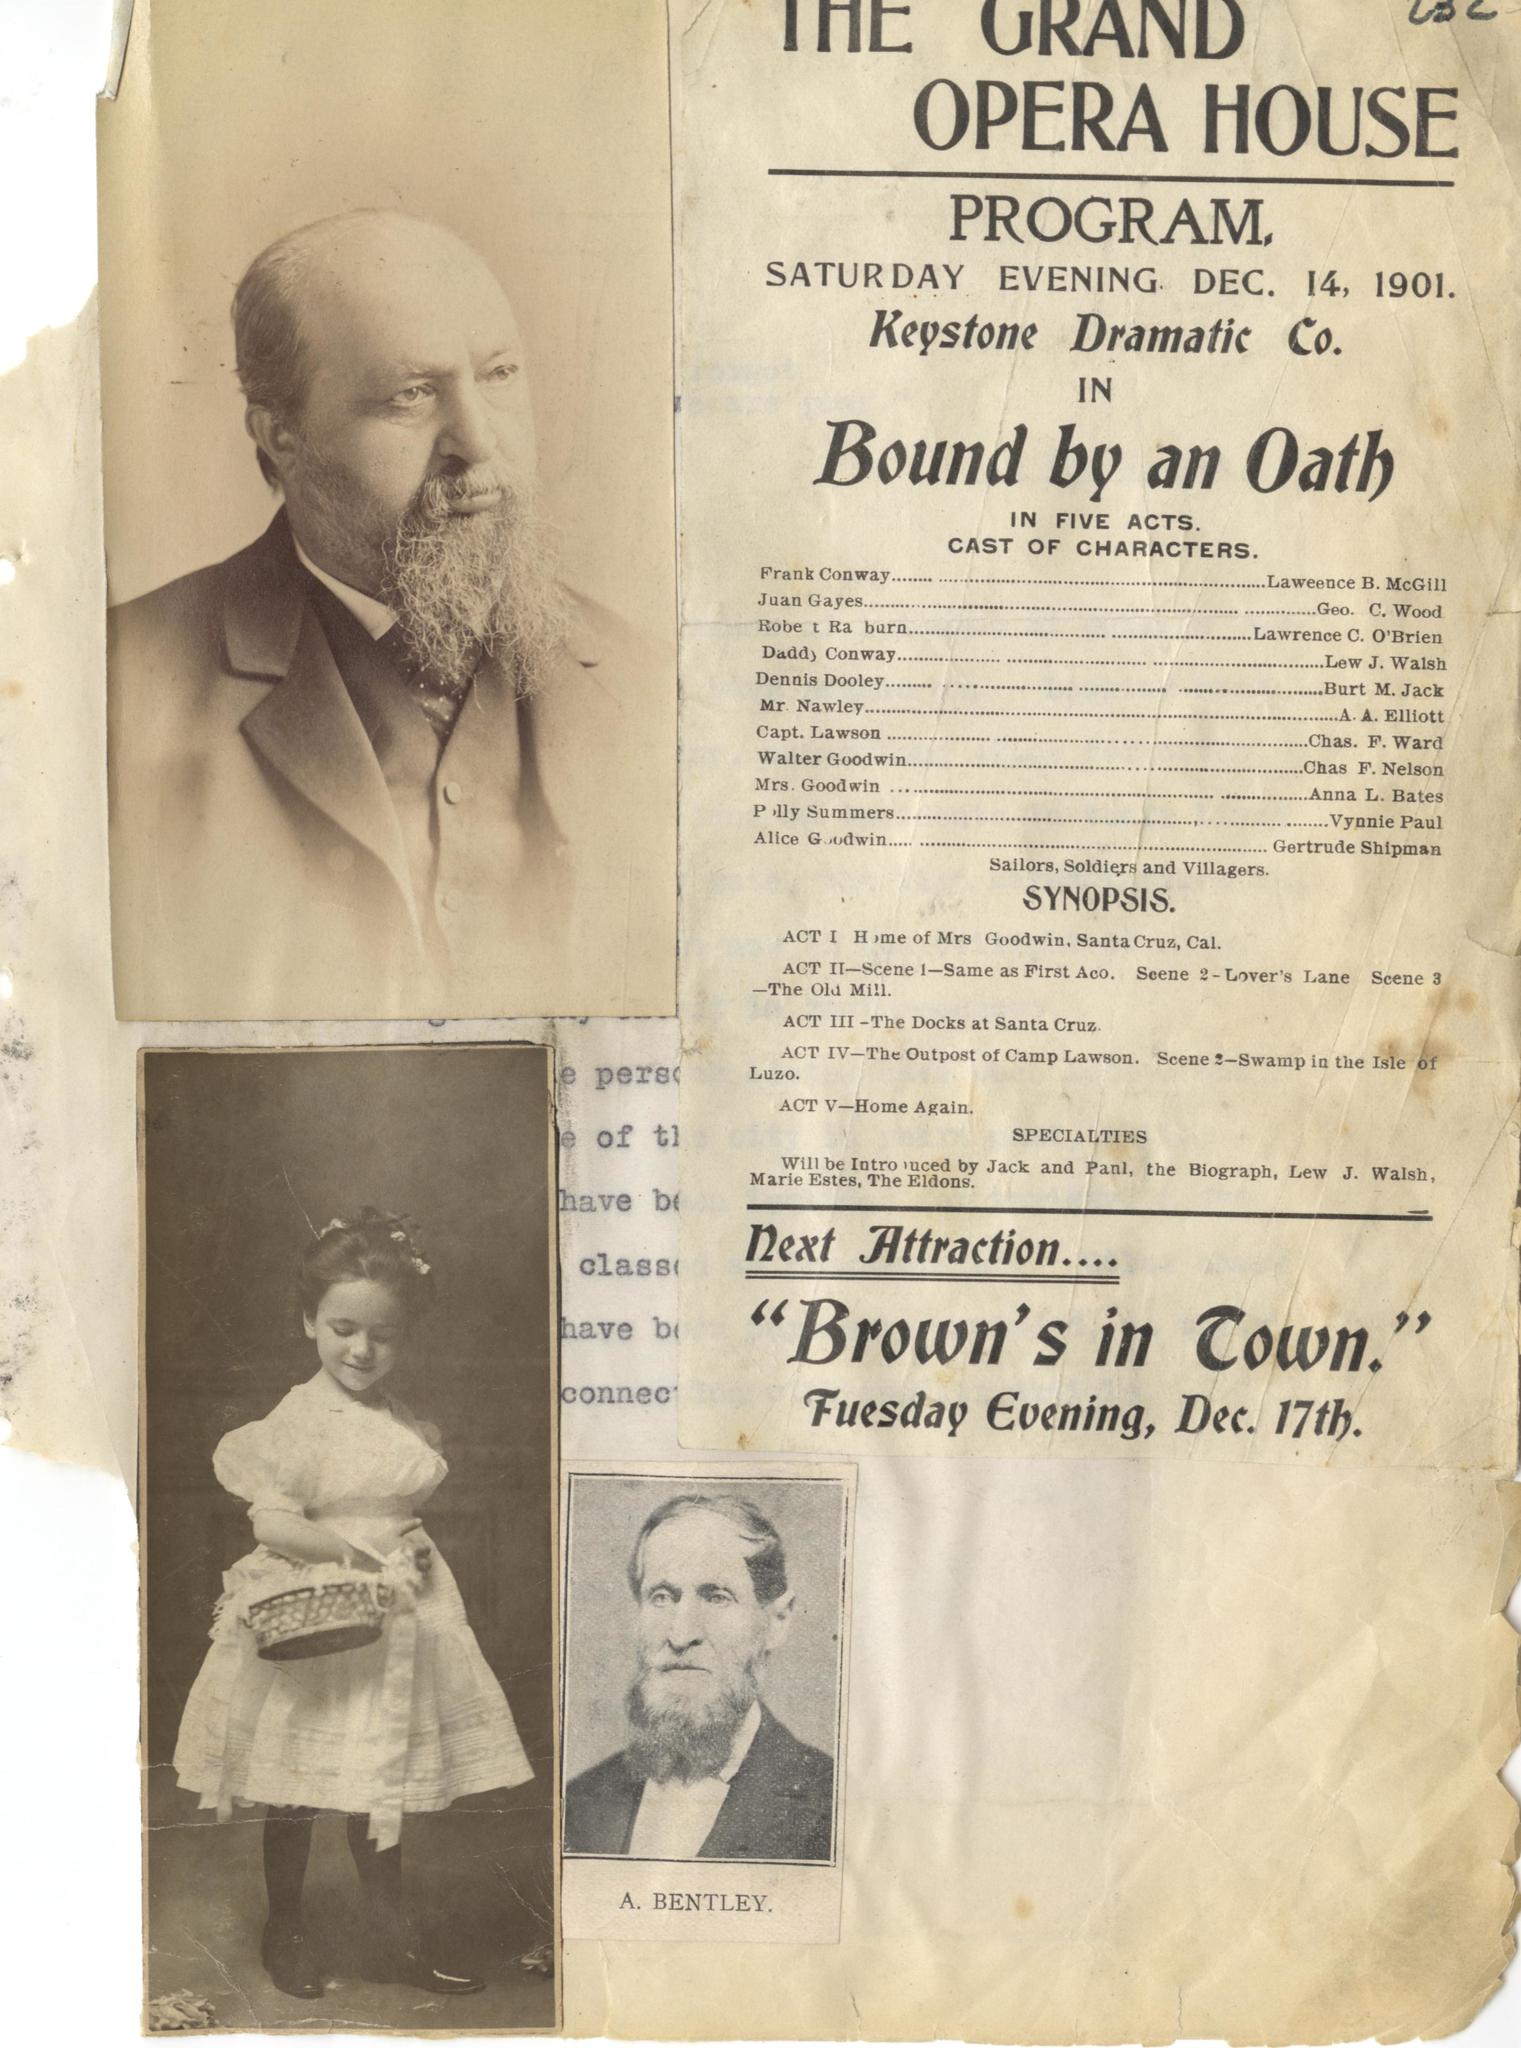 THE GRAND
OPERA HOUSE
PROGRAM,
SATURDAY EVENING. DEC. 14, 1901.
Keystone Dramatic Co.
IN
Bound by an Oath
IN FIVE ACTS.
CAST OF CHARACTERS.
Frank Conway........ ........Laweence B. McGill
Juan Gayes........Geo. C. Wood
Robe t Ra burn........Lawrence C. O'Brien
Daddy Conway........Lew J. Walsh
Dennis Dooley........Burt M. Jack
Mr. Nawley........A. A. Elliott
Capt. Lawson ........Chas. F. Ward
Walter Goodwin........Chas F. Nelson
Mrs. Goodwin ........Anna L. Bates
P lly Summers........Vynnie Paul
Alice G odwin........ Gertrude Shipman
Sailors, Soldiers and Villagers.
SYNOPSIS.
ACT I Home of Mrs Goodwin, Santa Cruz, Cal.
ACT II—Scene 1—Same as First Aco. Scene 2-Lover's Lane Scene 3
—The Old Mill.
ACT III -The Docks at Santa Cruz.
ACT IV—The Outpost of Camp Lawson. Scene 2—Swamp in the Isle of
Luzo.
ACT V—Home Again.
SPECIALTIES
Will be Intro uced by Jack and Panl, the Biograph, Lew J. Walsh,
Marie Estes, The Eldons.
Next Attraction....
"Brown's in Town."
Tuesday Evening, Dec. 17th.
e perso
e of th
have be
classe
have be
connect
A. BENTLEY.